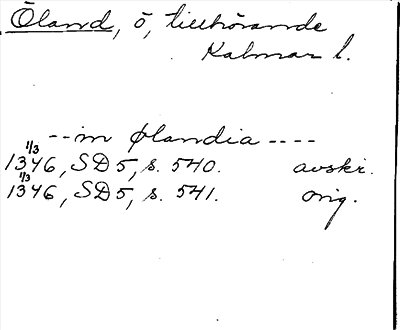 Öland, ö, tillhörande
Kalmar l.
-- in Ølandia ----
1346 1/3, SD5, s. 540. avskr.
1346 1/3, SD5, s. 541. orig.